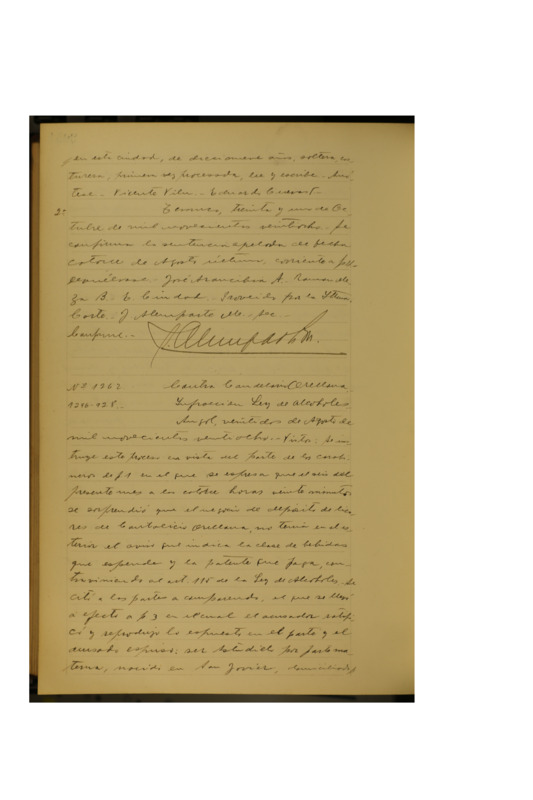 en esta ciudad, de diecinueve años, soltera, cos-
turera, primera vez procesada, lee y escribe. Anó-
tese. Vicente Vilu. Eduardo
2º Temuco, treinta y uno de Oc-
tubre de mil novecientos veintiocho. Se
confirma la sentencia apelada de fecha
catorce de Agosto último, corriente a
Devuélvase. José Arancibia A. Ramon
B. Proveído por la Iltma.
Corte. J Alemparte sec.
Conforme.-
Nº 1262 Contra Candelario Orellana
Infraccion Ley de Alcoholes.
Angol, veintidos de Agosto de
mil novecientos veintiocho. Vistos: Se ins-
truye este proceso en vista del parte de los carabi-
neros de f 1 en el que se espresa que el seis del
presente mes a las catorce horas veinte minutos
se sorprendió que el negocio de depósito de lico-
res de Orellana, no tenia en el es-
terior el aviso que indica la clase de bebidas
que espende y la patente que paga, con-
traviniendo al art. 115 de la Ley de Alcoholes. Se
citó a las partes a comparendo, el que se llevó
a efecto a f 3 en el cual el acusador ratifi-
có y reprodujo lo espuesto en el parte y el
acusado espuso: ser
terna, nacido en San Javier, domiciliado